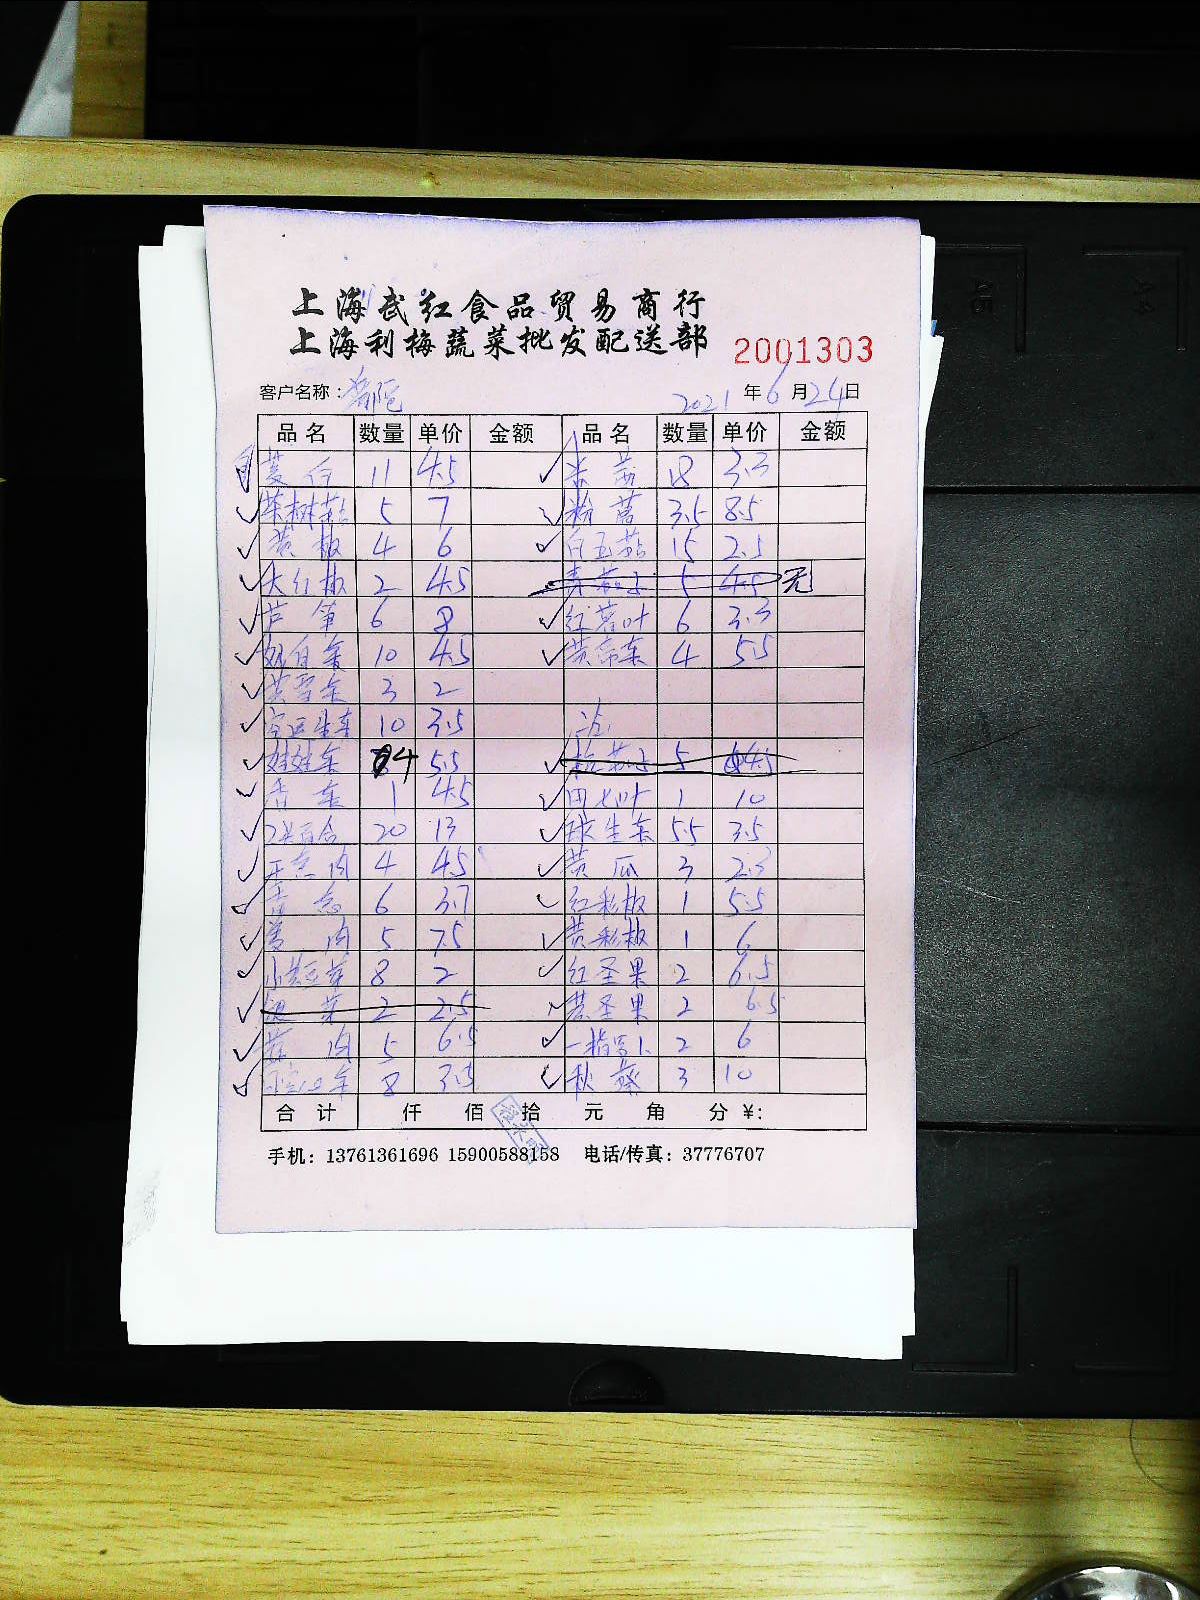 上海武红食品贸易商行
上海利梅蔬菜批发配送部
2001303
客户名称: 2021年6月24日
品名 数量 单价 金额 品名 数量 单价 金额
茭白 11 4.5 米苋 18 3.3
茶树菇 5 7 粉葛 3.5 8.5
黄椒 4 6 白玉菇 15 2.5
大红椒 2 4.5 青茄子 5 4.5 无
芦笋 6 8 红薯叶 6 3.3
奶白菜 10 4.5 黄帝菜 4 5.5
3 2
空运生菜 10 3.5 沱
娃娃菜 4 5.5 杭茄子 5 4.5
香菜 1 4.5 田七叶 1 10
百合 20 13 球生菜 5.5 3.5
肉 4 4.5 黄瓜 3 2.3
葱 6 3.7 红彩椒 1 5.5
姜肉 5 7.5 黄彩椒 1 6
小黄豆芽 8 2 红圣果 2 6.5
银芽 2 2.5 黄圣果 2 6.5
蒜肉 5 6.5 一指 2 6
菜 8 3.5 秋葵 3 10
合计 仟 佰 拾 元 角 分 ¥:
手机: 13761361696 15900588158 电话/传真: 37776707